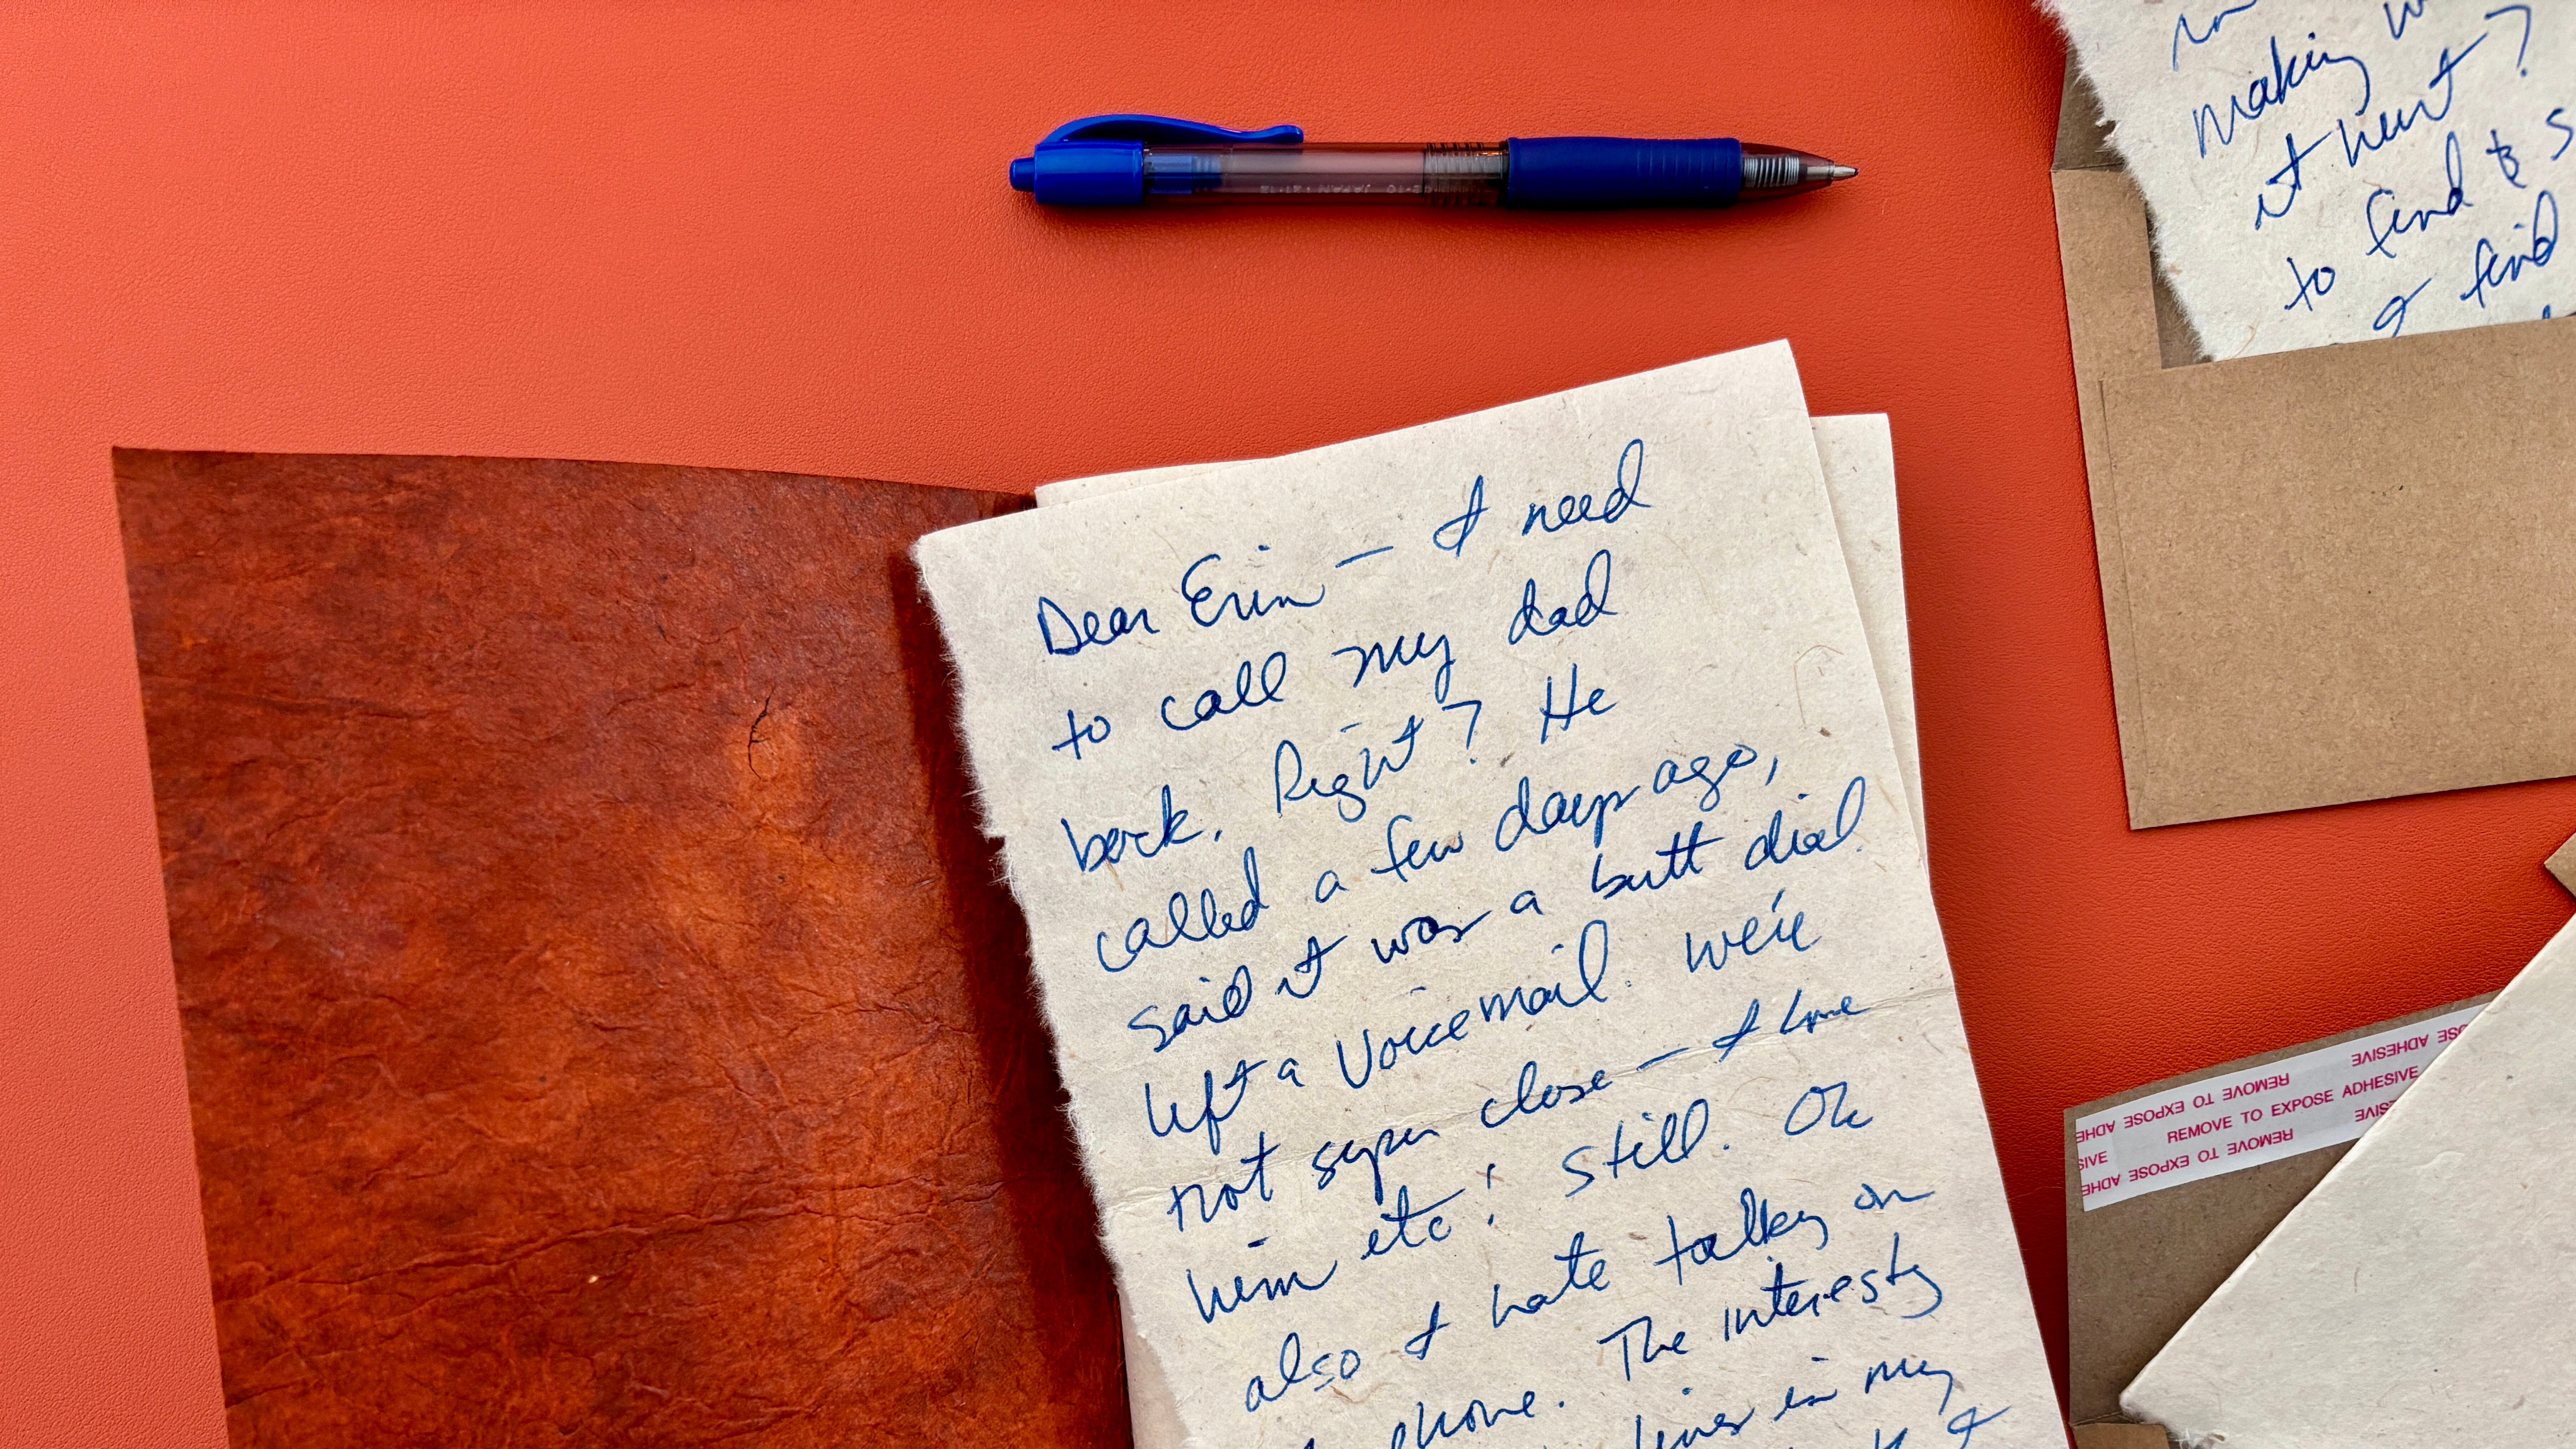 Dear Erin — I need
to call my dad
back. Right? He
called a few days ago,
said it was a butt dial.
left a voicemail. We're
not super close — I love
him etc! Still. Ok
also I hate talking on
phone. The interesting
lives in my
I
making
it hurt?
to find
I find
REMOVE TO EXPOSE ADHESIVE
REMOVE TO EXPOSE ADHESIVE
REMOVE TO EXPOSE ADHE
JAPAN